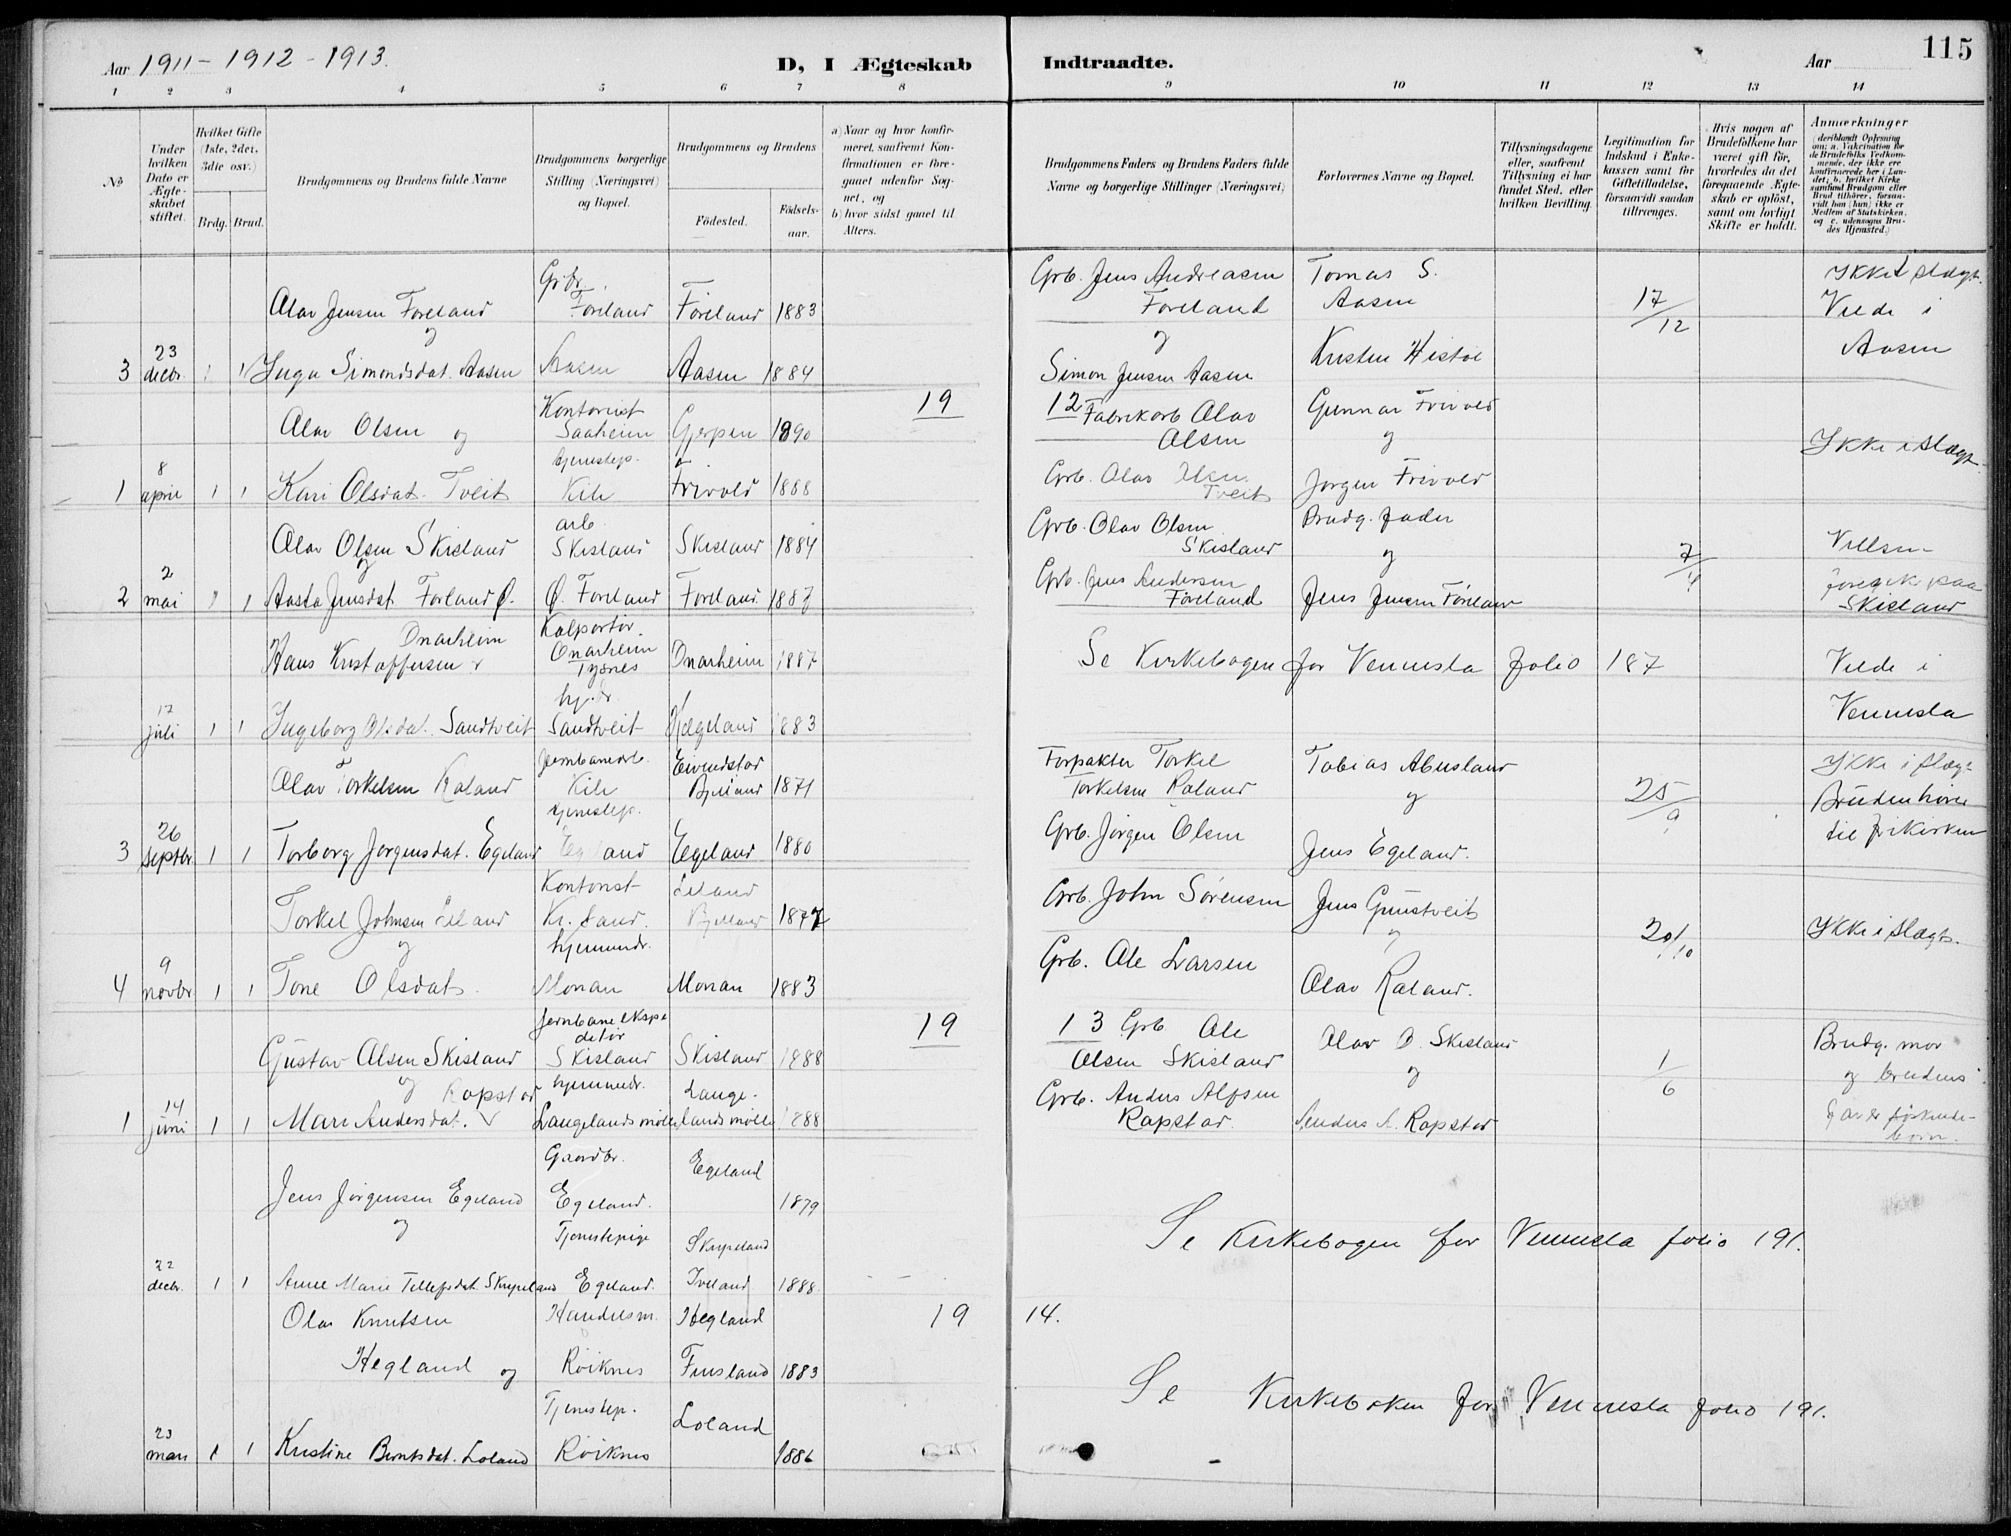 Aar 1911 - 1912 - 1913.
D, I Ægteskab
Indtraadte.
Aar
115
1 2 3 4 5 6 7 8 9 10 11 12 13 14
No
Under hvilken Dato er Ægteskabet stiftet.
Hvilket Gifte (1ste, 2det, 3die osv.)
Brdg. Brud.
Brudgommens og Brudens fulde Navne
Brudgommens borgerlige Stilling (Næringsvei) og Bopæl.
Brudgommens og Brudens
Fødested.
Fødselsaar.
a) Naar og hvor konfirmeret, saafremt Konfirmationen er foregaaet udenfor Sognet, og
b) hvor sidst gaaet til Alters.
Brudgommens Faders og Brudens Faders fulde Navne og borgerlige Stillinger (Næringsvei)
Forlovernes Navne og Bopæl.
Tillysningsdagene eller, saafremt Tillysning ei har fundet Sted, efter hvilken Bevilling.
Legitimation for Indskud i Enkekassen samt for Giftetilladelse, forsaavidt saadan tiltrænges.
Hvis nogen af Brudefolkene har været gift før, hvorledes da det foregaaende Ægteskab er opløst, samt om lovligt Skifte er holdt.
Anmærkninger (deriblandt Oplysning om: a. Vakcination for de Brudefolks Vedkommende, der ikke ere konfirmerede her i Landet; b. hvilket Kirkesamfund Brudgom eller Brud tilhører, forsaavidt han (hun) ikke er Medlem af Statskirken, og c. udensogns Brudes Hjemsted.)
Olav Jensen Foreland Foreland Föreland 1883 Grb. Jens Andreasen Foreland Tomas S. Aasen 17/12 Ikke i slægt. Viede i Aasen
og
3 23 decbr. 1 1 Inga Simondsdat. Aasen Aasen Aasen 1884 Simon Jensen Aasen Kristen
19 12
Olav Olsen og Kontorist Saaheim Gjerpen 1890 Fabrikarb Olav Olsen Gunnar Frivold og Ikke i slægt
1 8 april 1 1 Kari Olsdat. Tveit tjenestep. Kile Frivold 1888 Grb. Olav Tveit Jørgen Frivold
Olav Olsen Skisland arb Skisland Skisland 1884 Grb. Olav Olsen Skisland Brudg. fader og 7/4 Vielsen foregik paa Skisland
og
2 2 mai 1 1 Aasta Jensdat. Forland Ø. Ø. Foreland Foreland 1887 Grb. Jens Andersen Föreland Jens Jensen Föreland
Hans Kristoffersen Onarheim Kolportør. Onarheim Tysnes Onarheim 1887 Se Kirkebogen for Vennesla folio 187 Viede i Vennesla
17 juli 1 1 Ingeborg Olsdat. Sandtveit Sandtveit Hægeland 1883
Olav Torkelsen Raland Jernbanearb. Kile Eivindstad Bjelland 1871 Forpakter Torkel Torkelsen Raland Tobias Abusland og 25/9 Ikke i slægt Bruden hører til frikirken
3 26 septbr. 1 1 Torborg Jørgensdat. Egeland tjenestep. Egeland Egeland 1880 Grb. Jørgen Olsen Jens Egeland.
Torkel Johnsen Kontorist Kr. sand. Bjelland 1877 Grb. John Sørensen Jens og 20/10 Ikke i slægt.
og
4 9 novbr. 1 1 Tone Olsdat. hjemmedr. Monan Monan 1883 Grb. Ole Larsen Olav Raland.
19 13
Gustav Olsen Skisland Jernbaneekspeditør Skisland Skisland 1888 Grb Ole Olsen Skisland Olav O. Skisland og 1/6 Brudg. mor og brudens far er søskendebörn.
og
1 14 juni 1 1 Mari Andersdat. Ropstad hjemmedr. Langelandsmølle Langelandsmølle 1888 Grb. Anders Alfsen Rapstad. Anders A. Rapstad
Jens Jørgensen Egeland Gaardbr. Egeland. Egeland 1879 Se Kirkebogen for Vennesla folio 191.
og
22 decbr. 1 1 Anne Marie Tellefsdat. Skripeland Tjenestepige Egeland. Skripeland Iveland 1888
19 14.
Olav Knutsen Hegland og Handelsm. Röiknes Hegland Finsland 1883 Se Kirkeboken for Vennesla folio 191.
23 mars 1 1 Kristine Berntsdat. Loland Tjenestep. Röiknes Loland 1886